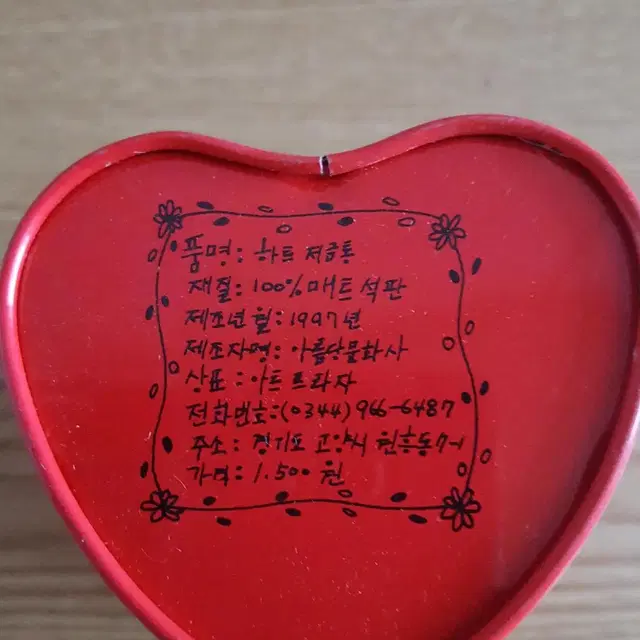 품명: 하트 저금통
재질: 100% 매트 석판
제조년월: 1997年
제조자명: 아름당문화사
상표: 아트 프라자
전화번호: (0344) 966-6487
주소: 경기도 고양시 원흥동 7-1
가격: 1.500 원